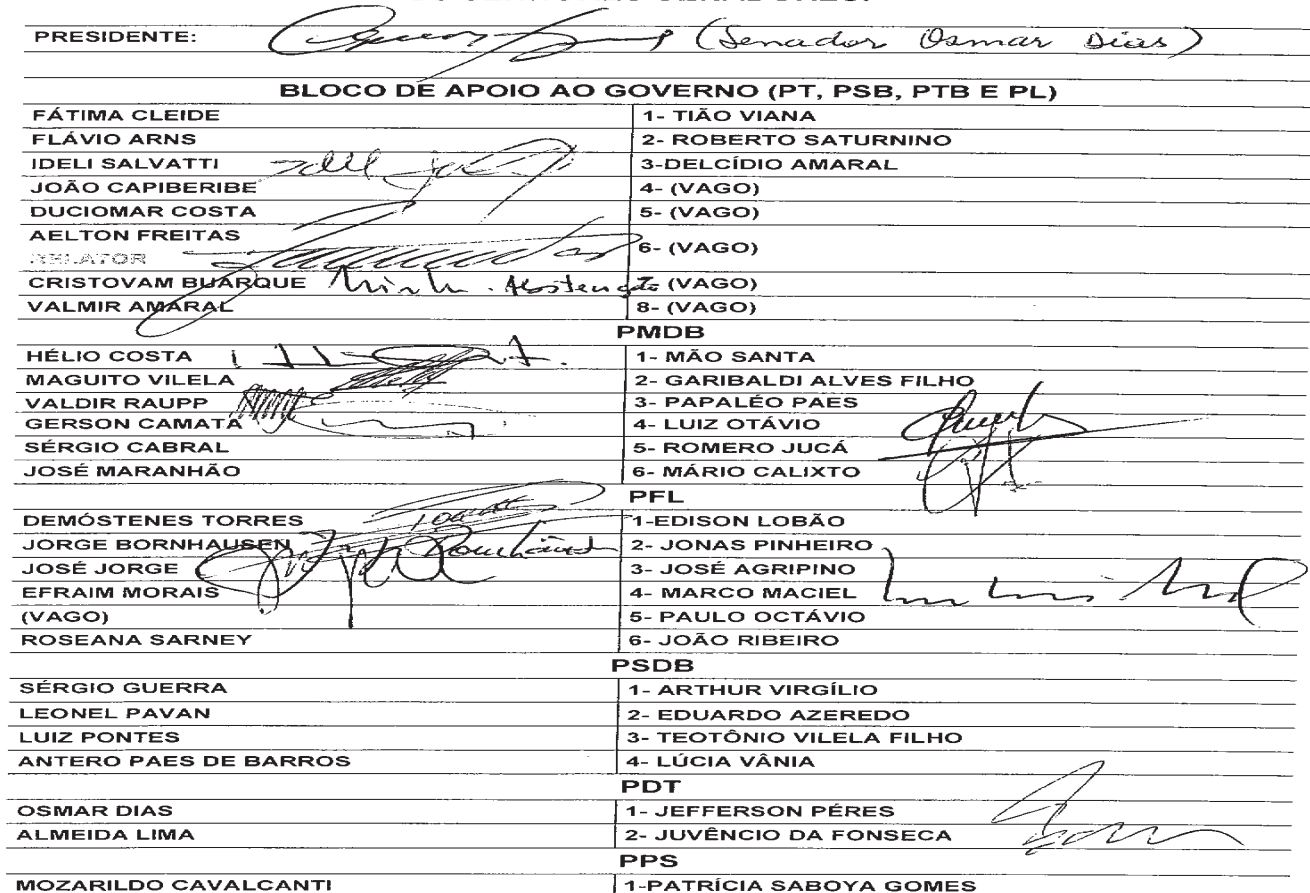 PRESIDENTE: (Senador Osmar Dias)
BLOCO DE APOIO AO GOVERNO (PT, PSB, PTB E PL)
FÁTIMA CLEIDE 1- TIÃO VIANA
FLÁVIO ARNS 2- ROBERTO SATURNINO
IDELI SALVATTI 3-DELCÍDIO AMARAL
JOÃO CAPIBERIBE 4- (VAGO)
DUCIOMAR COSTA 5- (VAGO)
AELTON FREITAS
RELATOR 6- (VAGO)
CRISTOVAM BUARQUE Abstenção (VAGO)
VALMIR AMARAL 8- (VAGO)
PMDB
HÉLIO COSTA 1- MÃO SANTA
MAGUITO VILELA 2- GARIBALDI ALVES FILHO
VALDIR RAUPP 3- PAPALÉO PAES
GERSON CAMATA 4- LUIZ OTÁVIO
SÉRGIO CABRAL 5- ROMERO JUCÁ
JOSÉ MARANHÃO 6- MÁRIO CALIXTO
PFL
DEMÓSTENES TORRES 1-EDISON LOBÃO
JORGE BORNHAUSEN 2- JONAS PINHEIRO
JOSÉ JORGE 3- JOSÉ AGRIPINO
EFRAIM MORAIS 4- MARCO MACIEL
(VAGO) 5- PAULO OCTÁVIO
ROSEANA SARNEY 6- JOÃO RIBEIRO
PSDB
SÉRGIO GUERRA 1- ARTHUR VIRGÍLIO
LEONEL PAVAN 2- EDUARDO AZEREDO
LUIZ PONTES 3- TEOTÔNIO VILELA FILHO
ANTERO PAES DE BARROS 4- LÚCIA VÂNIA
PDT
OSMAR DIAS 1- JEFFERSON PÉRES
ALMEIDA LIMA 2- JUVÊNCIO DA FONSECA
PPS
MOZARILDO CAVALCANTI 1-PATRÍCIA SABOYA GOMES